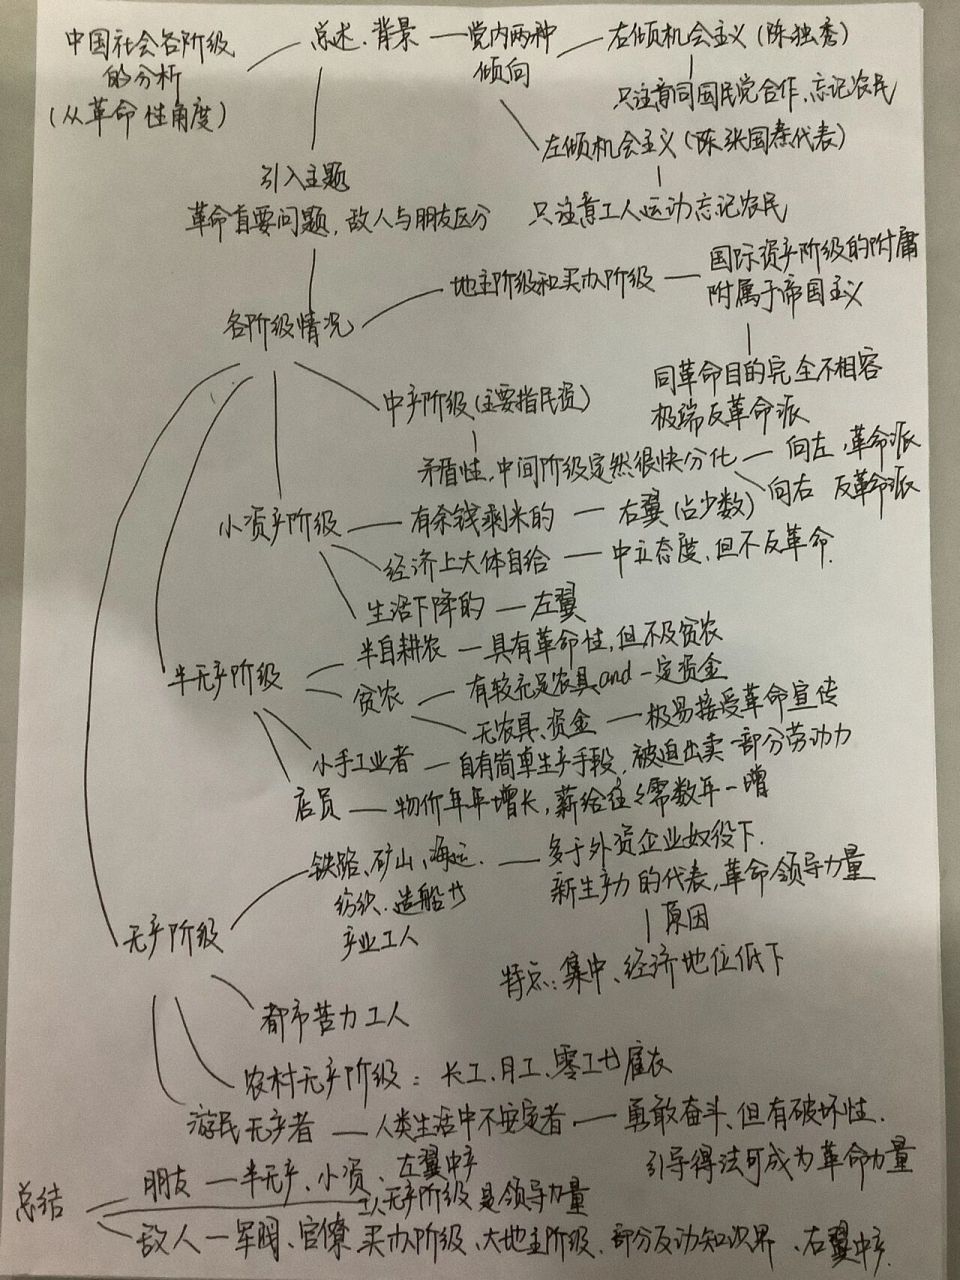 中国社会各阶级
的分析
(从革命性角度)
总述、背景
党内两种
倾向
右倾机会主义(陈独秀)
只注意同国民党合作、忘记农民
左倾机会主义(陈张国焘代表)
只注意工人运动忘记农民
引入主题
革命首要问题,敌人与朋友区分
各阶级情况
地主阶级和买办阶级
国际资产阶级的附庸
附属于帝国主义
同革命目的完全不相容
极端反革命派
中产阶级(主要指民资)
矛盾性,中间阶级定然很快分化
向左,革命派
向右 反革命派
小资产阶级
有余钱剩米的
右翼(占少数)
经济上大体自给
中立态度,但不反革命.
生活下降的
左翼
半无产阶级
半自耕农
具有革命性,但不及贫农
贫农
有较充足农具and一定资金
无农具、资金
极易接受革命宣传
小手工业者
自有简单生产手段,被迫出卖一部分劳动力
店员
物价年年增长,薪给往々需数年一增
无产阶级
铁路、矿山、海运.
纺织、造船业
产业工人
多于外资企业奴役下.
新生产力的代表,革命领导力量
原因
特点:集中、经济地位低下
都市苦力工人
农村无产阶级:长工、月工、零工也雇农
游民无产者
人类生活中不安定者
勇敢奋斗、但有破坏性.
引导得法可成为革命力量
总结
朋友
半无产、小资、左翼中产
工人无产阶级是领导力量
敌人
军阀、官僚 买办阶级、大地主阶级、部分反动知识界、右翼中产.